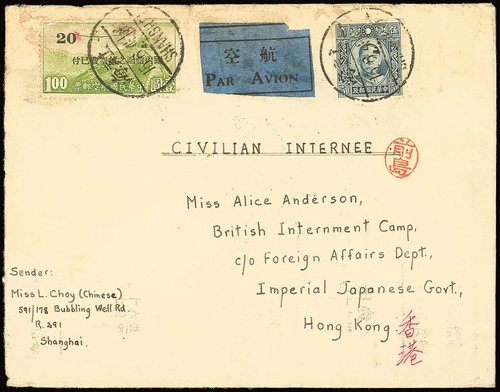 20
付已費資內國
100 圓
SHANGHAI
空 航
PAR AVION
CIVILIAN INTERNEE
前島
Miss Alice Anderson,
British Internment Camp,
c/o Foreign Affairs Dept.,
Imperial Japanese Govt.,
Hong Kong 香港
Sender:
Miss L. Choy (Chinese)
591/178 Bubbling Well Rd.
R. 291
Shanghai.